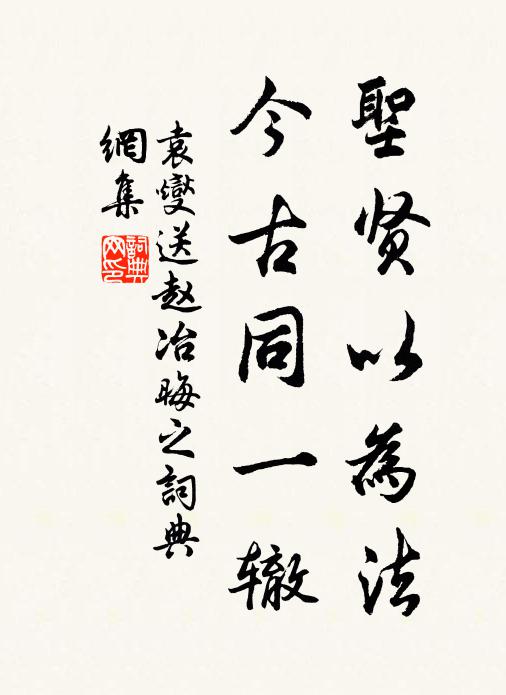 聖贤以為法
今古同一辙
袁燮送赵冶晦之詞典
網集
詞典
网印